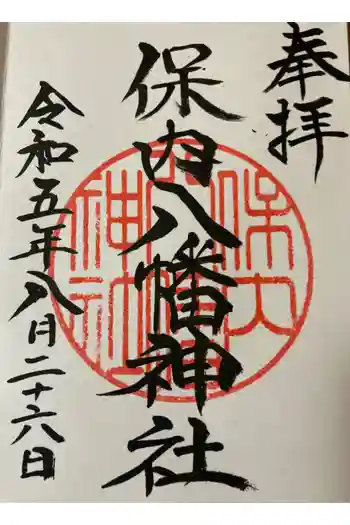 奉拝
保内八幡神社
令和五年八月二十六日
保内
神社